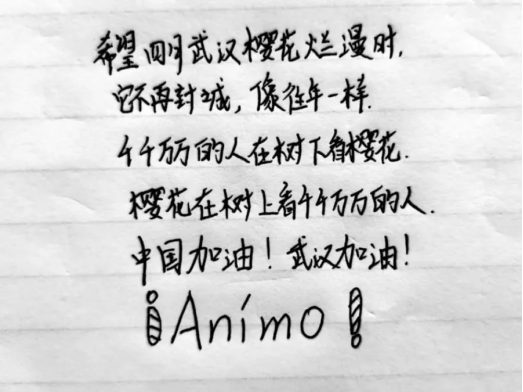 希望四月武汉樱花烂漫时,
它不再封城,像往年一样.
千千万万的人在树下看樱花.
樱花在树上看千千万万的人.
中国加油!武汉加油!
¡Animo!